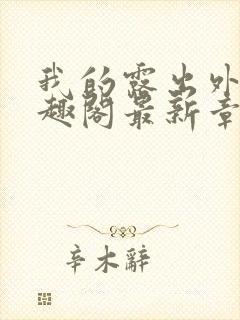 我的露出外
趣阁最新章
辛木辭